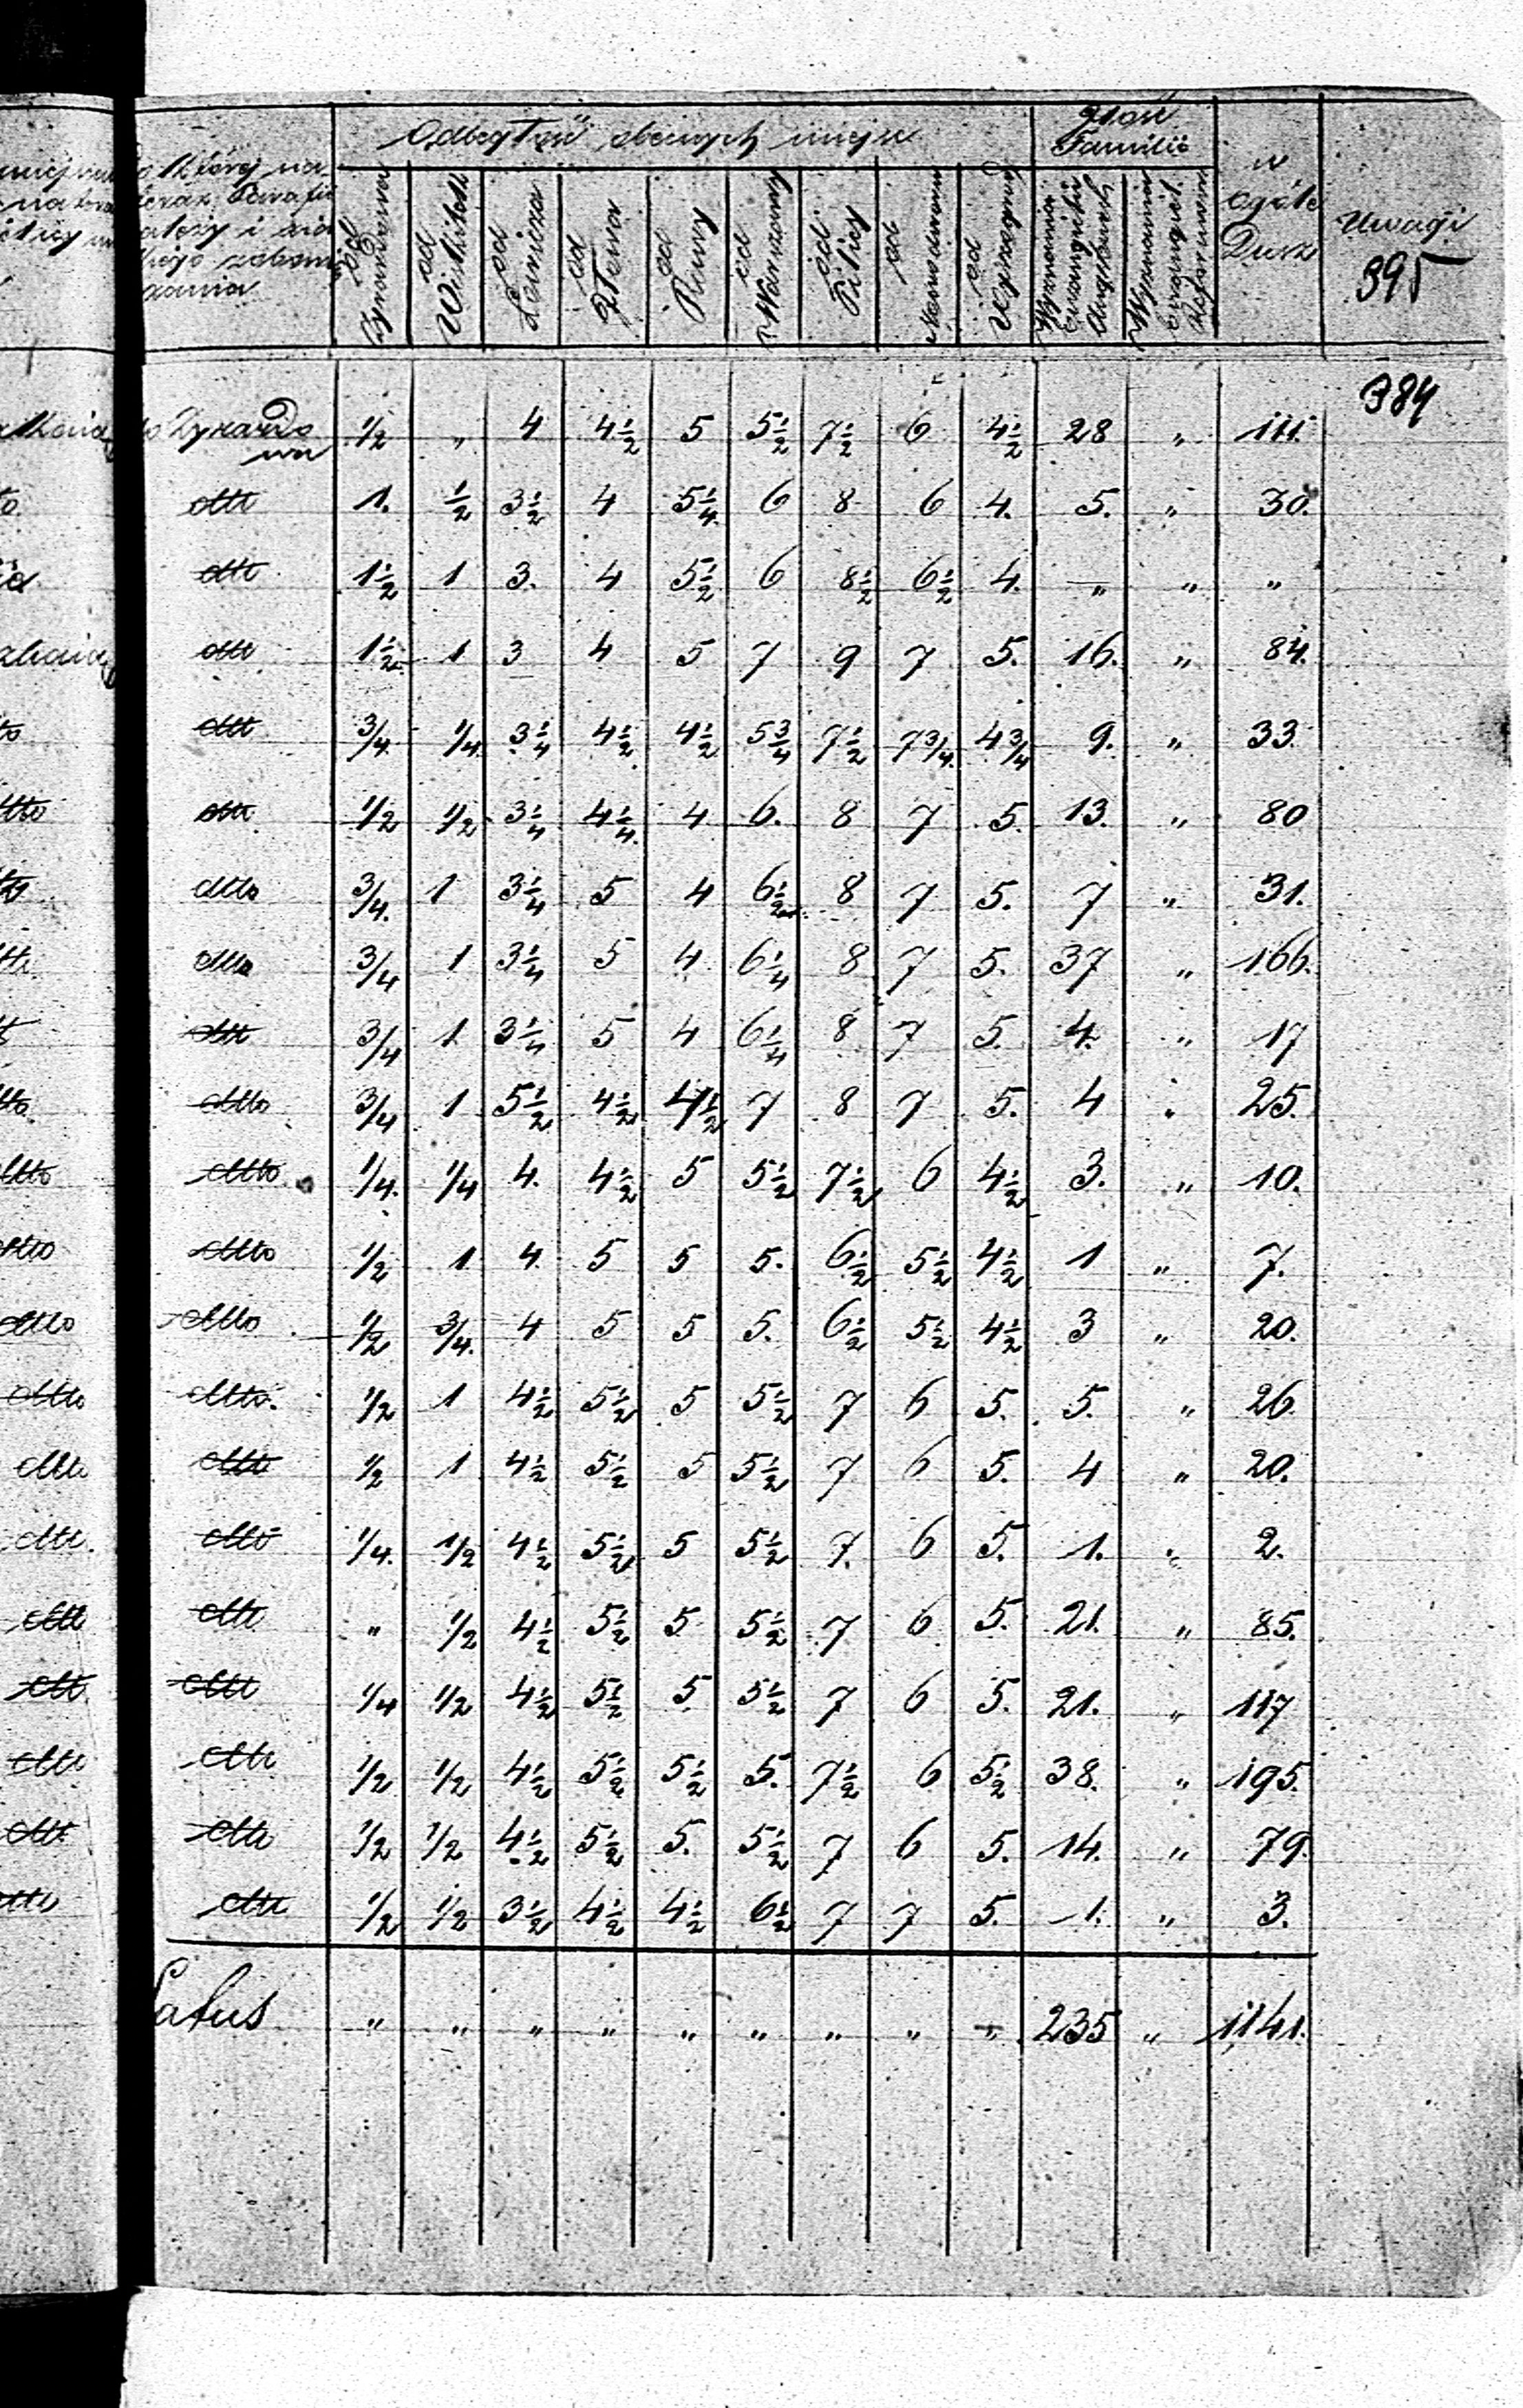 Odległość obecnych miejsc
Ilość Familii
w ogóle Dusz
Uwagi
395
od Żyrardowa | od Wiskitek | od Łowicza | od | od Rawy | od Warszawy | od Pilicy | od | od Wyszogrodu | Wyznania Ewangelicko Augsburg. | Wyznania Ewangiel. Reformowan.
384
do Żyrardowa | 1/2 | „ | 4 | 4 1/2 | 5 | 5 1/2 | 7 1/2 | 6 | 4 1/2 | 28 | „ | 111.
dtto | 1. | 1/2 | 3 1/2 | 4 | 5 1/4 | 6 | 8 | 6 | 4. | 5. | „ | 30.
dtto | 1 1/2 | 1 | 3. | 4 | 5 1/2 | 6 | 8 1/2 | 6 1/2 | 4. | „ | „ | „
dtto | 1 1/2 | 1 | 3 | 4 | 5 | 7 | 9 | 7 | 5. | 16. | „ | 84.
dtto | 3/4 | 1/4 | 3 1/4 | 4 1/2 | 4 1/2 | 5 3/4 | 7 1/2 | 7 3/4 | 4 3/4 | 9. | „ | 33.
dtto | 1/2 | 1/2 | 3 1/4 | 4 1/4 | 4 | 6. | 8 | 7 | 5. | 13. | „ | 80
dtto | 3/4 | 1 | 3 1/4 | 5 | 4 | 6 1/2 | 8 | 7 | 5. | 7 | „ | 31.
dtto | 3/4 | 1 | 3 1/4 | 5 | 4 | 6 1/4 | 8 | 7 | 5. | 37 | „ | 166.
dtto | 3/4 | 1 | 3 1/4 | 5 | 4 | 6 1/4 | 8 | 7 | 5. | 4. | „ | 17
dtto | 3/4 | 1 | 5 1/2 | 4 1/2 | 4 1/2 | 7 | 8 | 7 | 5. | 4 | „ | 25.
dtto | 1/4 | 1/4 | 4. | 4 1/2 | 5 | 5 1/2 | 7 1/2 | 6 | 4 1/2 | 3. | „ | 10.
dtto | 1/2 | 1 | 4 | 5 | 5 | 5. | 6 1/2 | 5 1/2 | 4 1/2 | 1 | „ | 7.
dtto | 1/2 | 3/4 | 4 | 5 | 5 | 5. | 6 1/2 | 5 1/2 | 4 1/2 | 3 | „ | 20.
dtto | 1/2 | 1 | 4 1/2 | 5 1/2 | 5 | 5 1/2 | 7 | 6 | 5. | 5. | „ | 26.
dtto | 1/2 | 1 | 4 1/2 | 5 1/2 | 5 | 5 1/2 | 7 | 6 | 5. | 4 | „ | 20.
dtto | 1/4 | 1/2 | 4 1/2 | 5 1/2 | 5 | 5 1/2 | 7. | 6 | 5. | 1. | „ | 2.
dtto | „ | 1/2 | 4 1/2 | 5 1/2 | 5 | 5 1/2 | 7 | 6 | 5. | 21. | „ | 85.
dtto | 1/4 | 1/2 | 4 1/2 | 5 1/2 | 5 | 5 1/2 | 7 | 6 | 5. | 21. | „ | 117
dtto | 1/2 | 1/2 | 4 1/2 | 5 1/2 | 5 1/2 | 5. | 7 1/2 | 6 | 5 1/2 | 38. | „ | 195.
dtto | 1/2 | 1/2 | 4 1/2 | 5 1/2 | 5. | 5 1/2 | 7 | 6 | 5. | 14. | „ | 79.
dtto | 1/2 | 1/2 | 3 1/2 | 4 1/2 | 4 1/2 | 6 1/2 | 7 | 7 | 5. | 1. | „ | 3.
Latus | „ | „ | „ | „ | „ | „ | „ | „ | „ | 235 | „ | 1141.